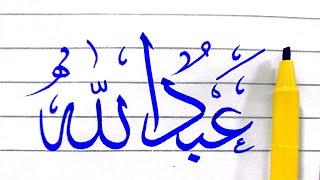 عَبدُالله